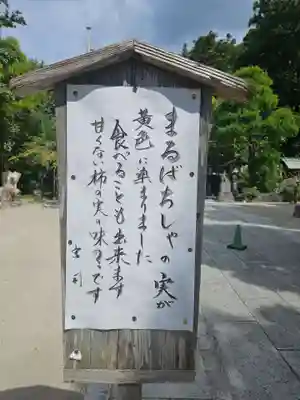 まるばちしゃの実が
黄色に染まりました
食べることも出来ます
甘くない柿の実の味です
宮司